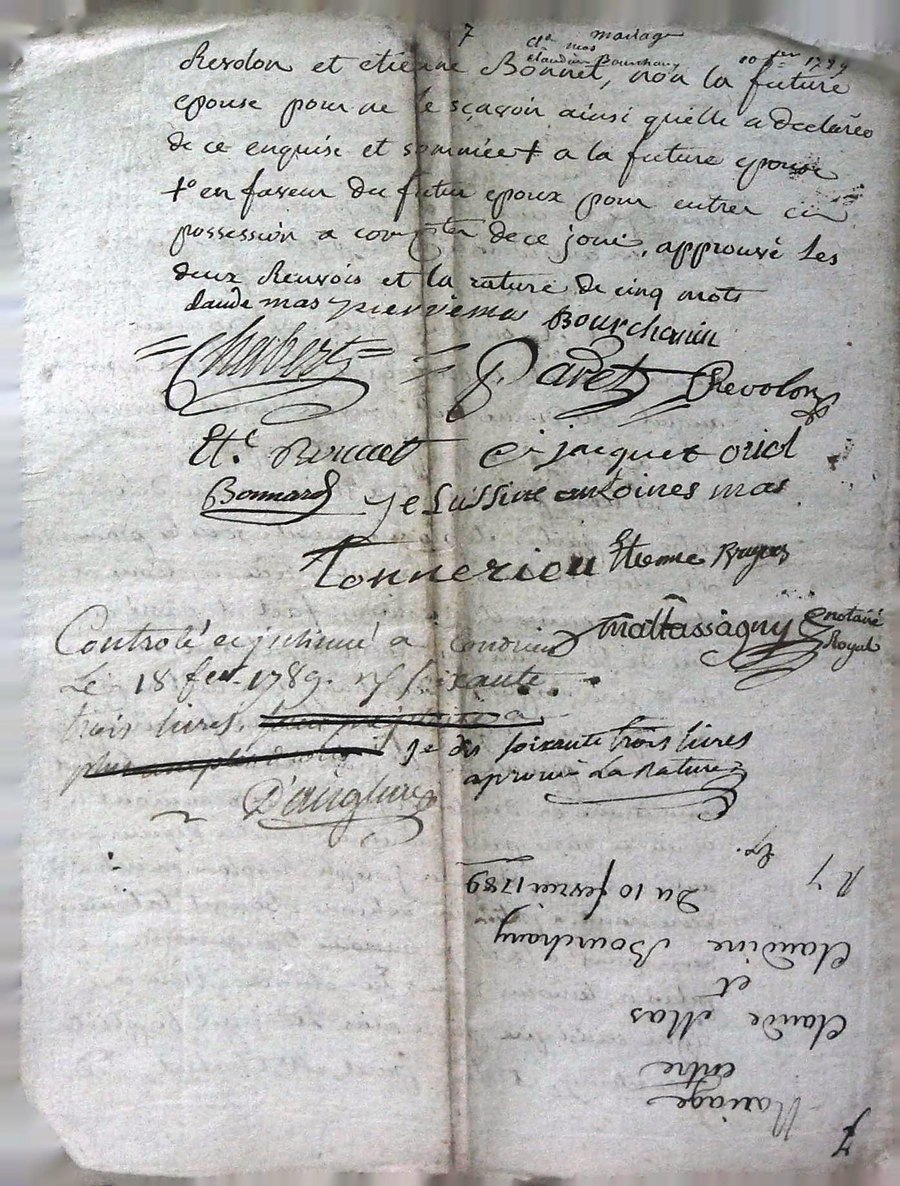 7
mariage
Cde mas
Claudine Bourchany
10 fer 1789
Revolon et etienne Bonnel, non la future
epouse pour ne le sçavoir ainsi quelle a declaréé
de ce enquise et sommée + a la future epouse
+ en faveur du futur epoux pour entrer en
possession a compter de ce jour, approuvé les
deux Renvois et la rature de cinq mots
Claude mas pierre mas Bourchanin
Chabert P. Paret Chevolon
Ete. Bonnet jacquet oriol
Bonnard je Sussine antoines mas
Tonnerieu Etienne Bruyere
mattassagny notaire
Royal
Controlé et insinué a Condrieu
Le 18 fer. 1789. soixante
trois livres.
Je dis soixante trois livres
aprouvé La Rature
D'anglure
Mariage
entre
Claude Mas
et
Claudine Bourchany
Du 10 fevrier 1789